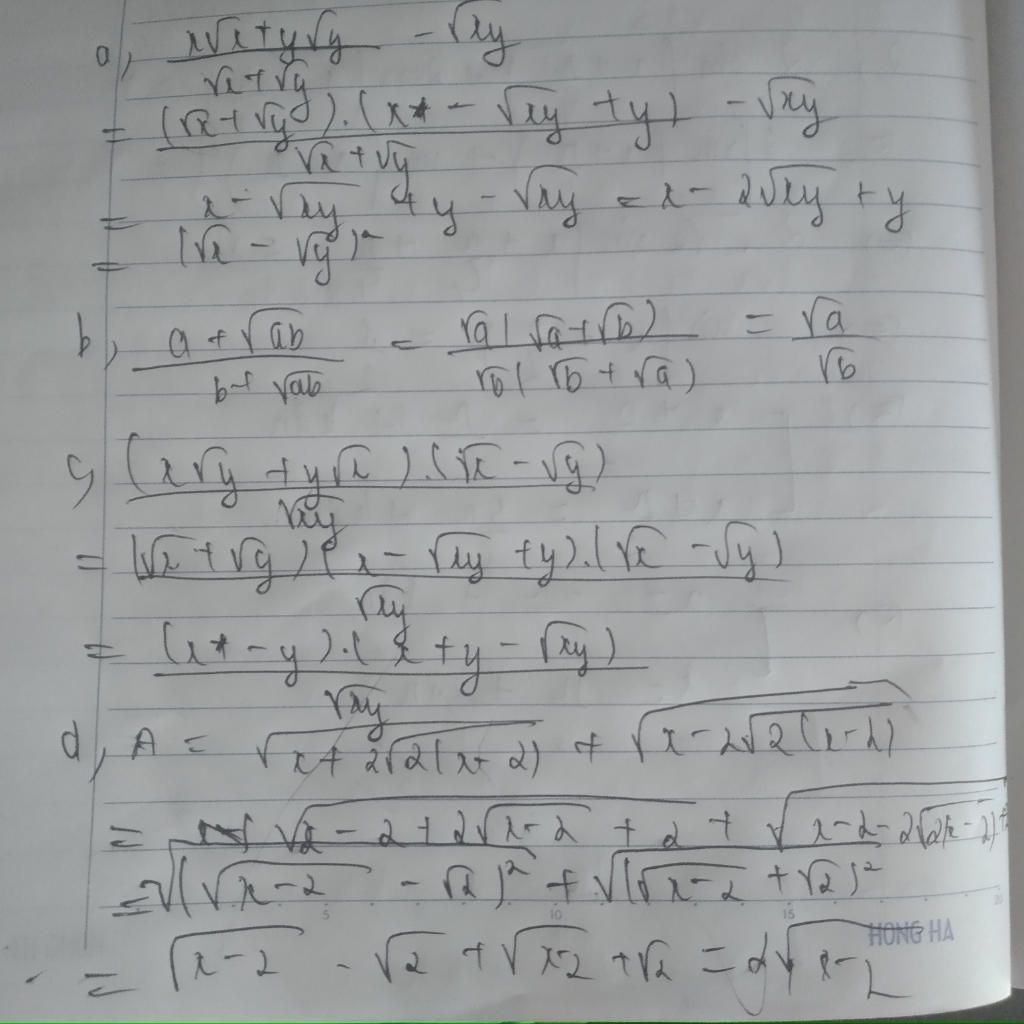 a, (x√x + y√y)/(√x + √y) - √xy
= ((√x + √y).(x - √xy + y))/(√x + √y) - √xy
= x - √xy + y - √xy = x - 2√xy + y
= (√x - √y)²
b, (a + √ab)/(b + √ab) = (√a(√a + √b))/(√b(√b + √a)) = √a/√b
c, ((x√y + y√x).(√x - √y))/√xy
= ((√x + √y)(x - √xy + y).(√x - √y))/√xy
= ((x - y).(x + y - √xy))/√xy
d, A = √(x + 2√(2(x + 2))) + √(x - 2√(2(x - 2)))
= √(x - 2 + 2√(x - 2) + 2) + √(x - 2 - 2√(2(x - 2)) +
= √((√(x - 2) - √2)²) + √((√(x - 2) + √2)²)
5 10 15 20
HONG HA
= √(x - 2) - √2 + √(x - 2) + √2 = 2√(x - 2)